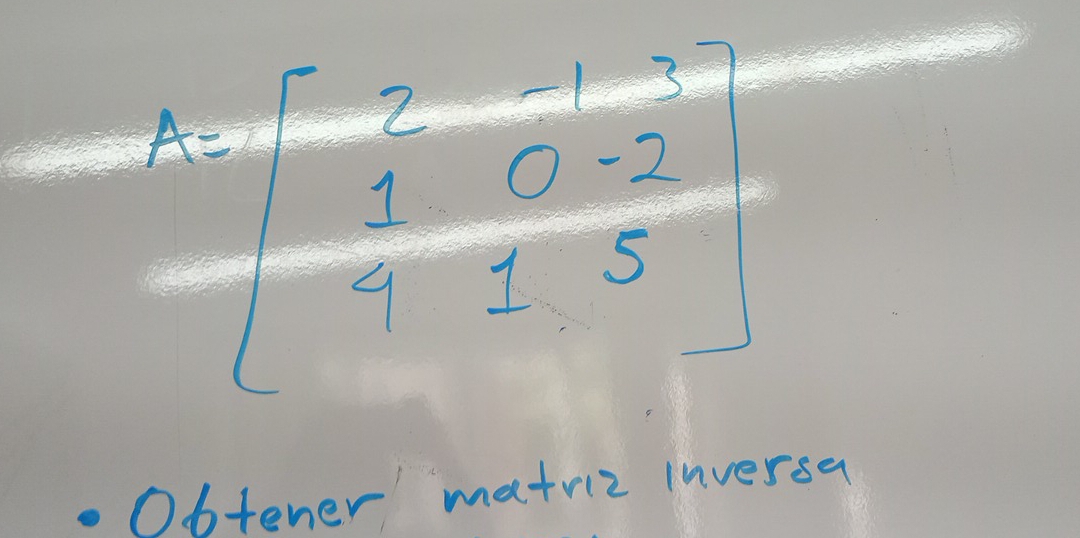 2 -1 3
A=
1 0 -2
4 1 5
• Obtener matriz inversa